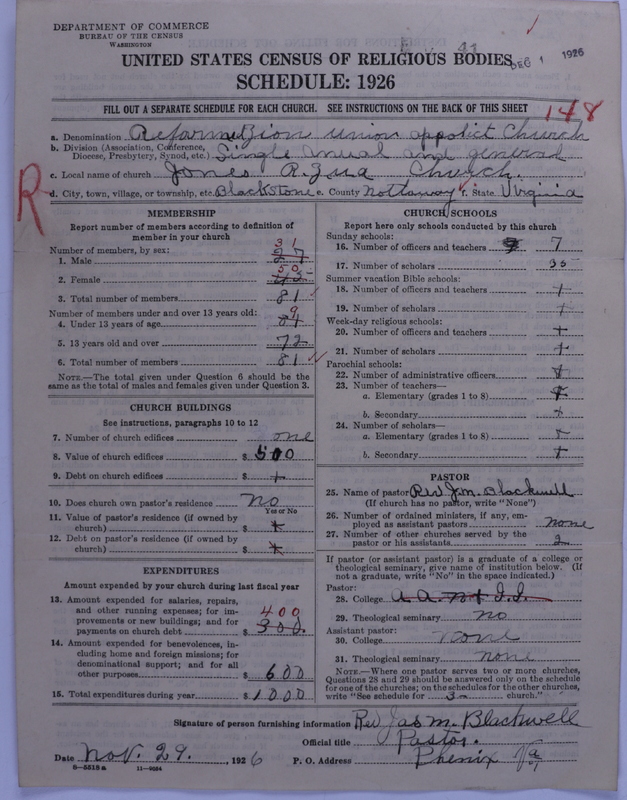 DEPARTMENT OF COMMERCE
BUREAU OF THE CENSUS
WASHINGTON
DEC 1 1926
UNITED STATES CENSUS OF RELIGIOUS BODIES
SCHEDULE: 1926
FILL OUT A SEPARATE SCHEDULE FOR EACH CHURCH. SEE INSTRUCTIONS ON THE BACK OF THIS SHEET
148
a. Denomination Reformed Zion union appolict Church
b. Division (Association, Conference, Diocese, Presbytery, Synod, etc.) Single anual and general
c. Local name of church Jones R. Zua Church.
d. City, town, village, or township, etc. Blackstone e. County Nottaway f. State Virginia
R
MEMBERSHIP
Report number of members according to definition of
member in your church
Number of members, by sex:
1. Male 27 31
2. Female 50
3. Total number of members 81
Number of members under and over 13 years old:
4. Under 13 years of age 9
5. 13 years old and over 72
6. Total number of members 81
NOTE.—The total given under Question 6 should be the
same as the total of males and females given under Question 3.
CHURCH BUILDINGS
See instructions, paragraphs 10 to 12
7. Number of church edifices one
8. Value of church edifices $ 500
9. Debt on church edifices $ +
10. Does church own pastor's residence No
Yes or No
11. Value of pastor's residence (if owned by
church) $ +
12. Debt on pastor's residence (if owned by
church) $ +
EXPENDITURES
Amount expended by your church during last fiscal year
13. Amount expended for salaries, repairs,
and other running expenses; for im-
provements or new buildings; and for
payments on church debt $ 300 400
14. Amount expended for benevolences, in-
cluding home and foreign missions; for
denominational support; and for all
other purposes $ 600
15. Total expenditures during year $ 1000
CHURCH SCHOOLS
Report here only schools conducted by this church
Sunday schools:
16. Number of officers and teachers 7
17. Number of scholars 35
Summer vacation Bible schools:
18. Number of officers and teachers +
19. Number of scholars +
Week-day religious schools:
20. Number of officers and teachers +
21. Number of scholars +
Parochial schools:
22. Number of administrative officers +
23. Number of teachers—
a. Elementary (grades 1 to 8) +
b. Secondary +
24. Number of scholars—
a. Elementary (grades 1 to 8) +
b. Secondary +
PASTOR
25. Name of pastor Rev J.M. Blackwell
(If church has no pastor, write "None")
26. Number of ordained ministers, if any, em-
ployed as assistant pastors none
27. Number of other churches served by the
pastor or his assistants 2
If pastor (or assistant pastor) is a graduate of a college or
theological seminary, give name of institution below. (If
not a graduate, write "No" in the space indicated.)
Pastor:
28. College
29. Theological seminary no
Assistant pastor:
30. College none
31. Theological seminary none
NOTE.—Where one pastor serves two or more churches,
Questions 28 and 29 should be answered only on the schedule
for one of the churches; on the schedules for the other churches,
write "See schedule for 3 church."
Signature of person furnishing information Rev Jas M. Blackwell
Official title Pastor.
Date Nov. 29. , 1926 P. O. Address Phenix Va
8—5518a 11—9024